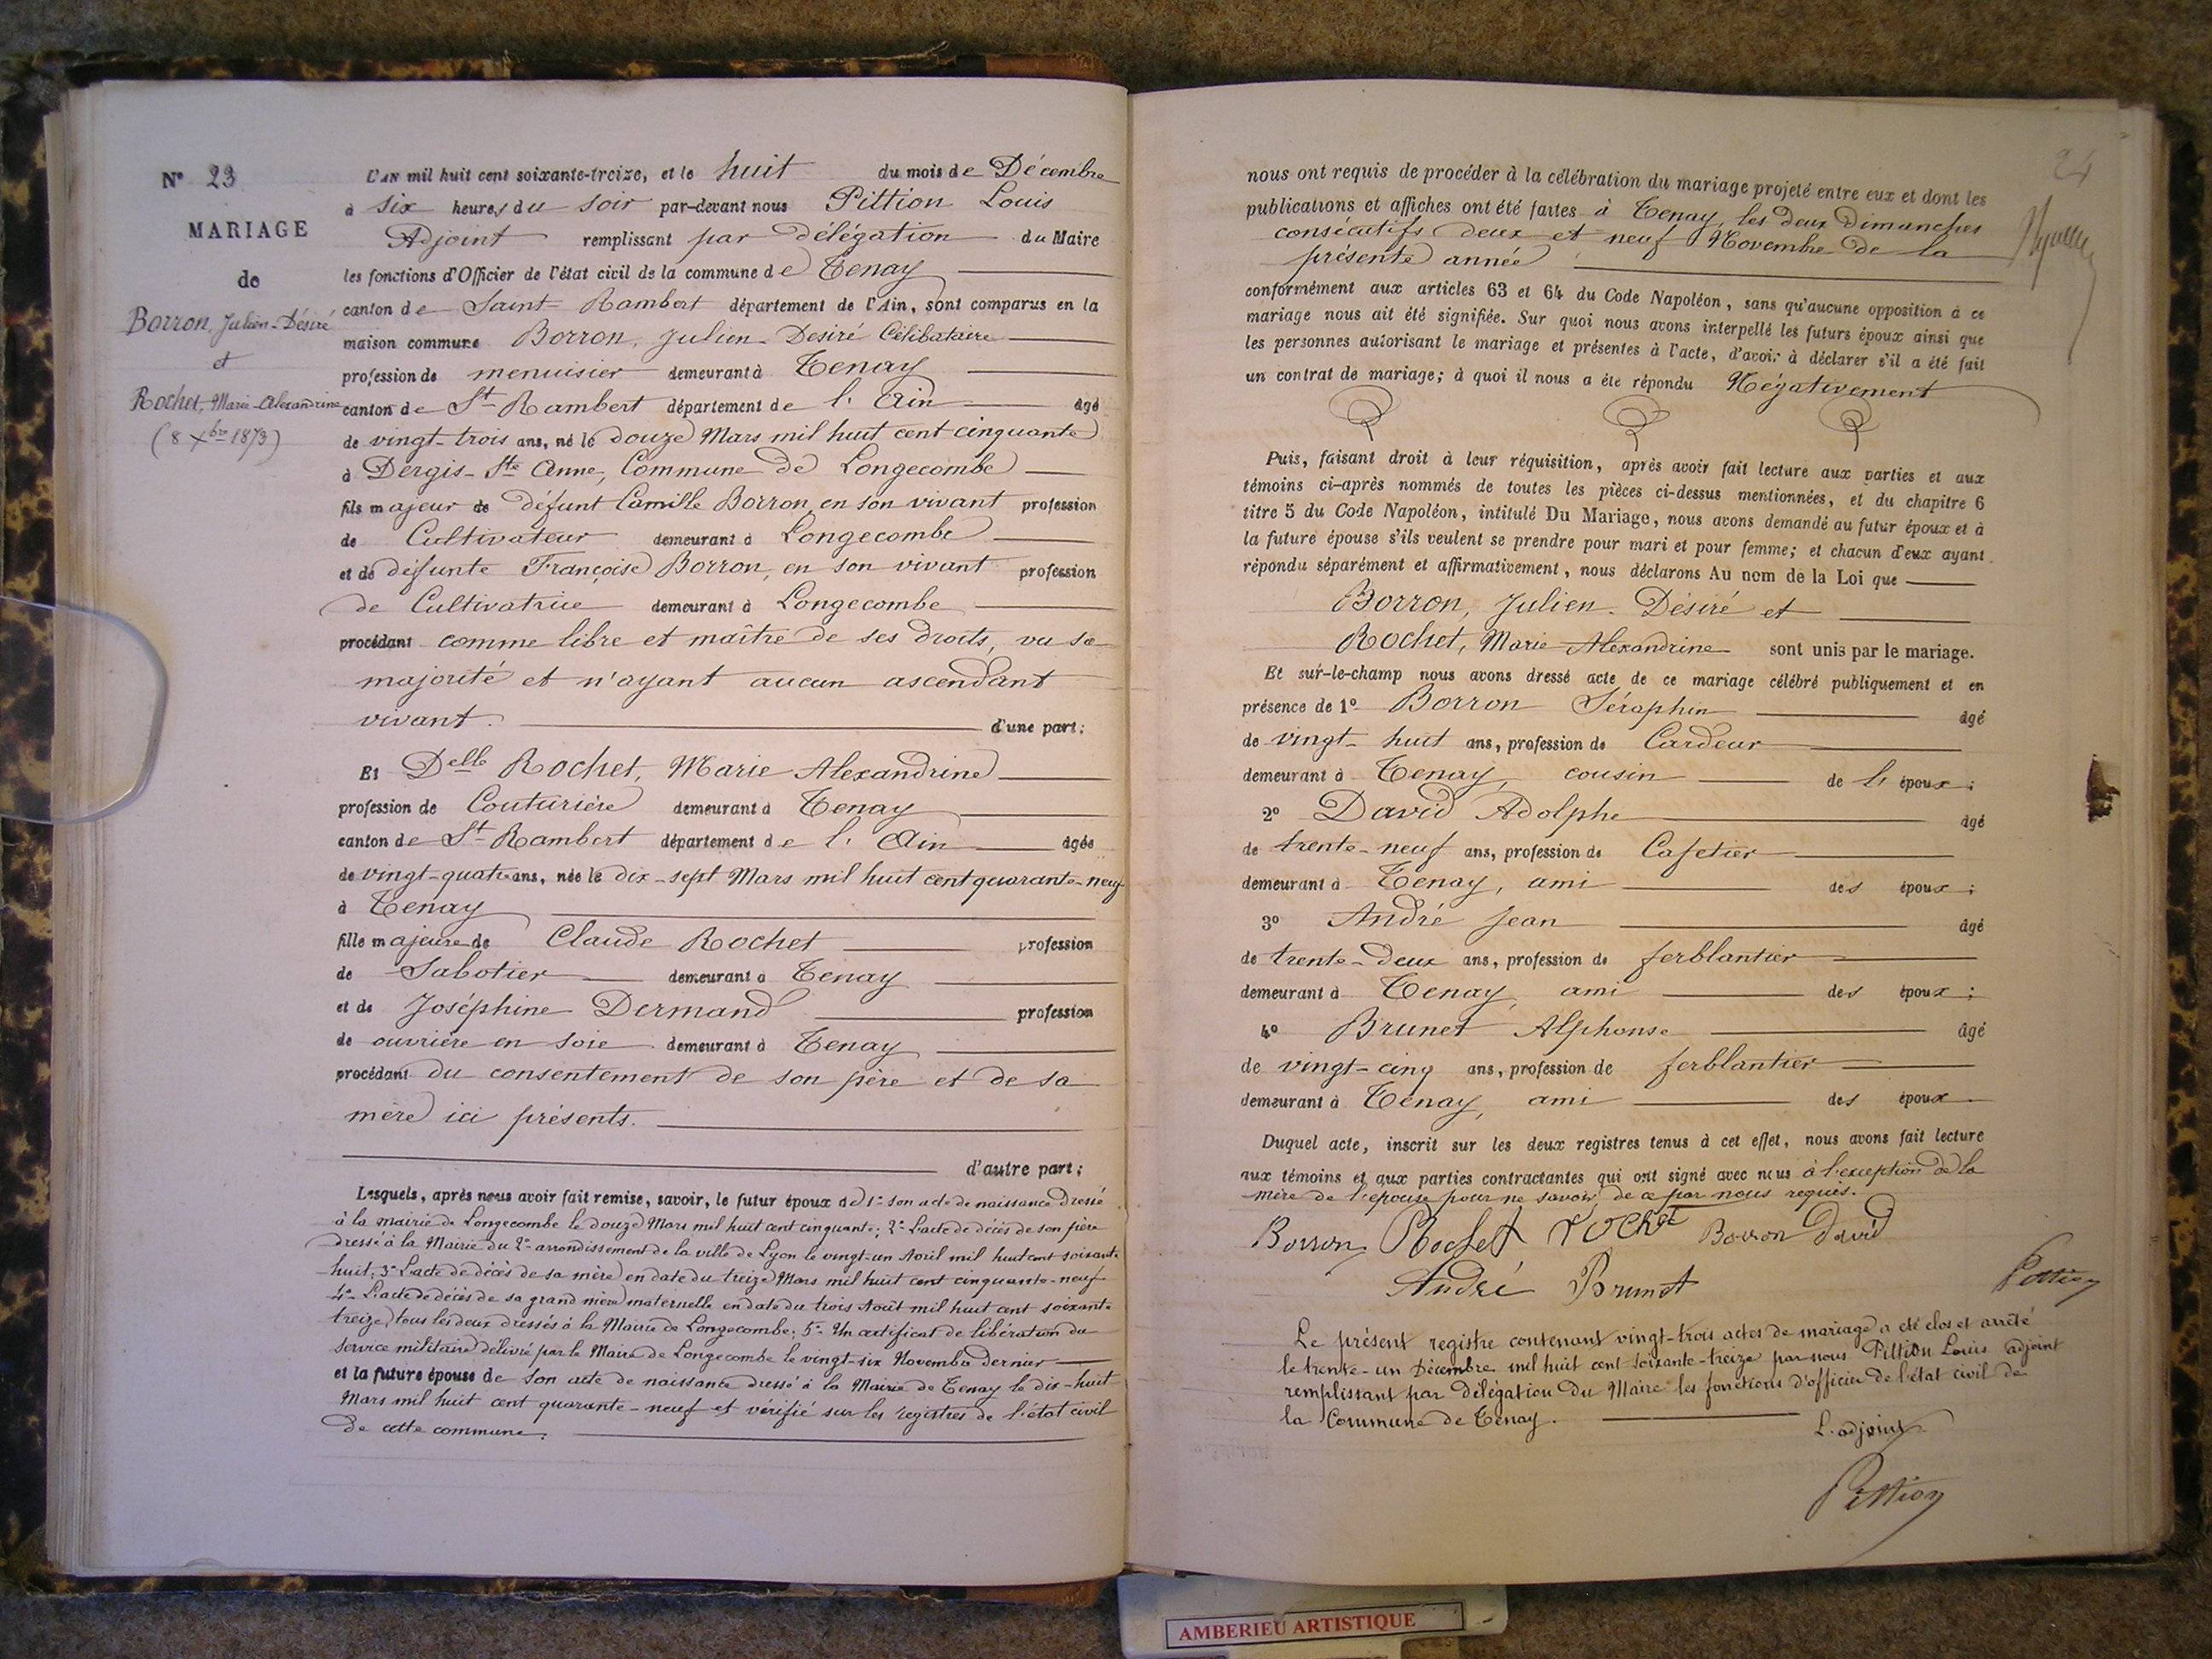 N° 23
MARIAGE
de
Borron, Julien-Désiré
et
Rochet, Marie-Alexandrine
(8 Xbre 1873)
L'AN mil huit cent soixante-treize, et le huit du mois de Décembre
à six heures du soir par-devant nous Pittion Louis
Adjoint remplissant par délégation du Maire
les fonctions d'Officier de l'état civil de la commune de Tenay
canton de Saint-Rambert département de l'Ain, sont comparus en la
maison commune Borron, Julien-Desiré Célibataire
profession de menuisier demeurant à Tenay
canton de St-Rambert département de l'Ain âgé
de vingt-trois ans, né le douze Mars mil huit cent cinquante
à Dergis-Ste Anne, Commune de Longecombe
fils majeur de défunt Camille Borron, en son vivant profession
de Cultivateur demeurant à Longecombe
et de défunte Françoise Borron, en son vivant profession
de Cultivatrice demeurant à Longecombe
procédant comme libre et maître de ses droits, vu sa
majorité et n'ayant aucun ascendant
vivant. d'une part;
Et Delle Rochet, Marie Alexandrine
profession de Couturière demeurant à Tenay
canton de St-Rambert département de l'Ain âgée
de vingt-quatre ans, née le dix-sept Mars mil huit cent quarante-neuf
à Tenay
fille majeure de Claude Rochet profession
de Sabotier demeurant à Tenay
et de Joséphine Dermand profession
de ouvrière en soie demeurant à Tenay
procédant du consentement de son père et de sa
mère ici présents.
d'autre part;
Lesquels, après nous avoir fait remise, savoir, le futur époux de 1° son acte de naissance dressé
à la mairie de Longecombe le douze Mars mil huit cent cinquante; 2° L'acte de décès de son père
dressé à la Mairie du 2e arrondissement de la ville de Lyon le vingt-un Avril mil huit cent soixante
huit; 3° L'acte de décès de sa mère en date du treize Mars mil huit cent cinquante-neuf
4° L'acte de décès de sa grand mère maternelle en date du trois Août mil huit cent soixante
treize, tous les deux dressés à la Mairie de Longecombe; 5° Un certificat de libération du
service militaire délivré par le Maire de Longecombe le vingt-six Novembre dernier
et la future épouse de son acte de naissance dressé à la Mairie de Tenay le dix-huit
Mars mil huit cent quarante-neuf et vérifié sur les registres de l'état civil
de cette commune.
24
nous ont requis de procéder à la célébration du mariage projeté entre eux et dont les
publications et affiches ont été faites à Tenay, les deux Dimanches
consécutifs deux et neuf Novembre de la
présente année
conformément aux articles 63 et 64 du Code Napoléon, sans qu'aucune opposition à ce
mariage nous ait été signifiée. Sur quoi nous avons interpellé les futurs époux ainsi que
les personnes autorisant le mariage et présentes à l'acte, d'avoir à déclarer s'il a été fait
un contrat de mariage; à quoi il nous a été répondu Négativement
Puis, faisant droit à leur réquisition, après avoir fait lecture aux parties et aux
témoins ci-après nommés de toutes les pièces ci-dessus mentionnées, et du chapitre 6
titre 5 du Code Napoléon, intitulé Du Mariage, nous avons demandé au futur époux et à
la future épouse s'ils veulent se prendre pour mari et pour femme; et chacun d'eux ayant
répondu séparément et affirmativement, nous déclarons Au nom de la Loi que
Borron, Julien-Désiré et
Rochet, Marie-Alexandrine sont unis par le mariage.
Et sur-le-champ nous avons dressé acte de ce mariage célébré publiquement et en
présence de 1° Borron Séraphin âgé
de vingt-huit ans, profession de Cardeur
demeurant à Tenay, cousin de l'époux;
2° David Adolphe âgé
de trente-neuf ans, profession de Cafetier
demeurant à Tenay, ami des époux;
3° André Jean âgé
de trente-deux ans, profession de ferblantier
demeurant à Tenay, ami des époux;
4° Brunet Alphonse âgé
de vingt-cinq ans, profession de ferblantier
demeurant à Tenay, ami des époux
Duquel acte, inscrit sur les deux registres tenus à cet effet, nous avons fait lecture
aux témoins et aux parties contractantes qui ont signé avec nous à l'exception de la
mère de l'épouse pour ne savoir, de ce par nous requis.
Borron Rochet Rochet Borron David
André Brunet Pittion
Le présent registre contenant vingt-trois actes de mariage a été clos et arrêté
le trente-un Décembre mil huit cent soixante-treize par nous Pittion Louis adjoint
remplissant par délégation du Maire les fonctions d'officier de l'état civil de
la Commune de Tenay.
L'adjoint
Pittion
AMBERIEU ARTISTIQUE